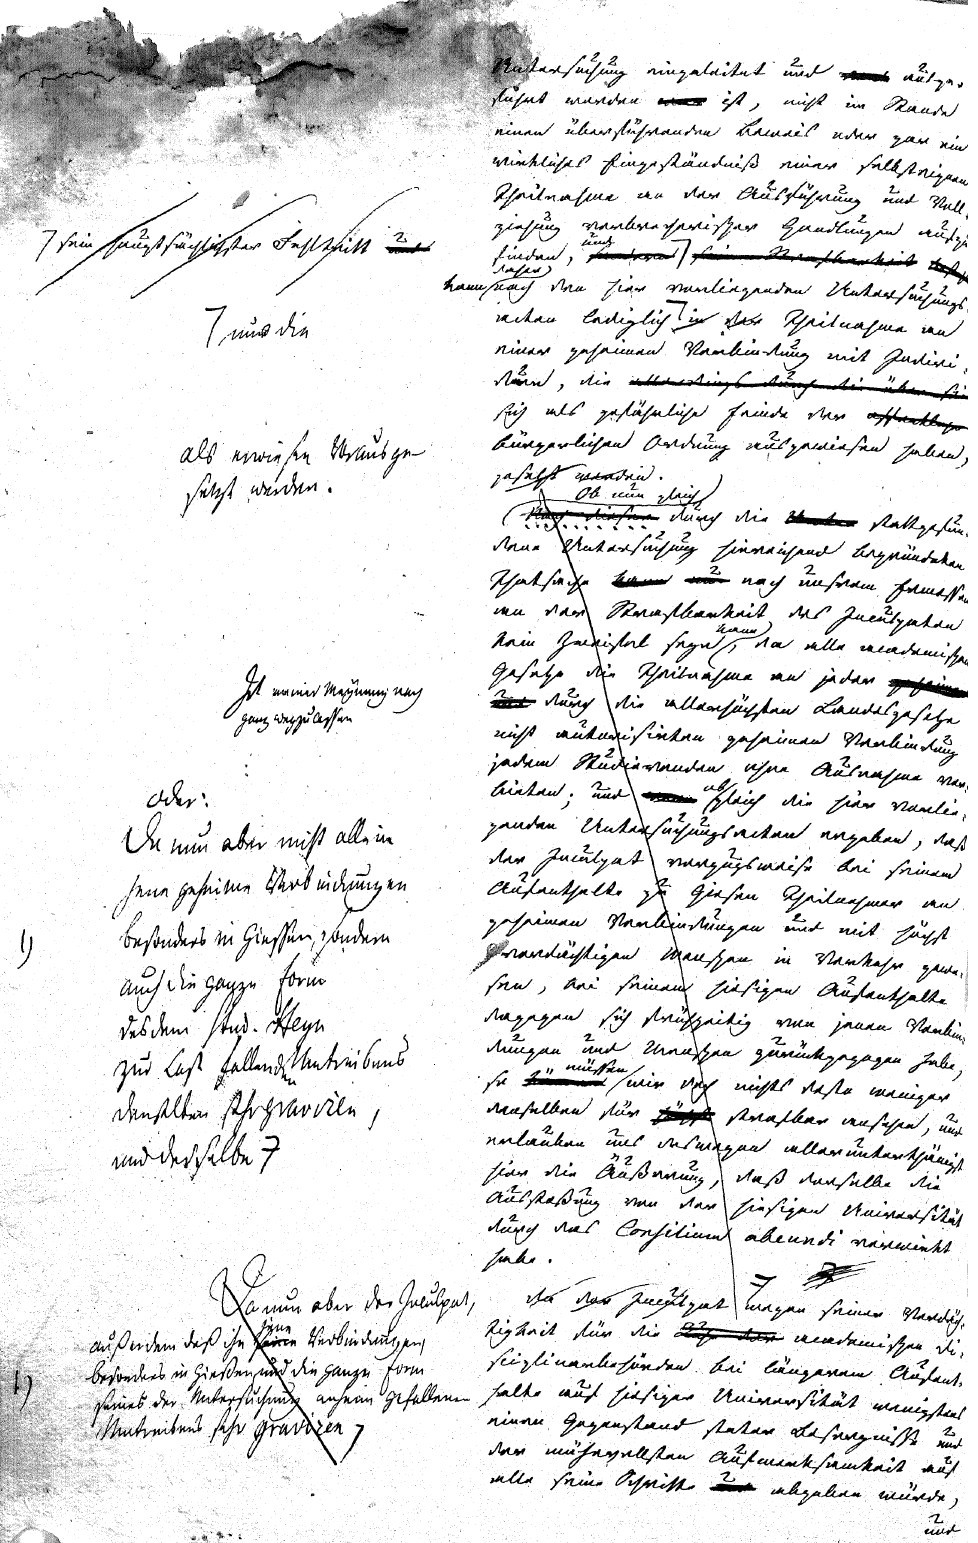 Untersuchung eingeleitet und aufge-
führt worden ist, nicht im Stande
einen überführenden Beweis oder gar ein
wirkliches Eingeständniß einer selbsteigenen
Theilnahme an der Ausführung und Voll-
ziehung verbrecherischer Handlungen
finden, und
kann daher nach den hier vorliegenden Untersuchungs-
acten lediglich in der Theilnahme an
einer geheimen Verbindung mit Indivi-
duen, die allerdings durch die über sie
sich als gefährliche Feinde der öffentlichen
bürgerlichen Ordnung ausgewiesen haben,
gesetzt werden.
Ob nun gleich
Nach dieser durch die stattgefun-
dene Untersuchung hinreichend begründeten
Thatsache kann nach unsrem Ermessen
an der Strafbarkeit des Inculpaten
kein Zweifel seyn kann, da alle academischen
Gesetze die Theilnahme an jeder geheimen
und durch die allerhöchsten Landesgesetze
nicht autorisirten geheimen Verbindung
jedem Studierenden ohne Ausnahme ver-
bieten; und obgleich die hier vorlie-
genden Untersuchungsacten ergeben, daß
der Inculpat vorzugsweise bei seinem
Aufenthalte zu Giesen Theilnehmer an
geheimen Verbindungen und mit höchst
verdächtigen Menschen in Verkehr gewe-
sen, bei seinem hiesigen Aufenthalte
dagegen sich frühzeitig von jenen Verbin-
dungen und Menschen zurückgezogen habe,
so müssen wir doch nichts desto weniger
denselben für strafbar ansehen, und
erlauben uns deswegen allerunterthänigst
hier die Äußerung, daß derselbe die
Ausstoßung von der hiesigen Universität
durch das Consilium abeundi verwirkt
habe.
Da der Inculpat wegen seiner Verdäch-
tigkeit für die academischen Di-
sciplinarbehörden bei längerem Aufent-
halte auf hiesiger Universität wenigstens
einen Gegenstand steter Besorgniß und
der mühevollsten Aufmerksamkeit auf
alle seine Schritte abgeben würde,
und
sein hauptsächlichster Fehltritt
nur die
als erwiesen Vorausge-
setzt werden.
Ist meiner Meynung nach
ganz wegzulassen
oder:
Da nun aber nicht allein
jene geheime Verbindungen
besonders in Giessen, sondern
auch die ganze Form
des dem stud. Heyn
zur Last fallenden Umtreibens
denselben sehr graviren,
und derselbe
1)
Da nun aber der Inculpat,
außerdem daß ihn jene Verbindungen,
besonders in Gießen und die ganze Form
seines der Untersuchung anheim gefallenen
Umtreibens sehr graviren
1)